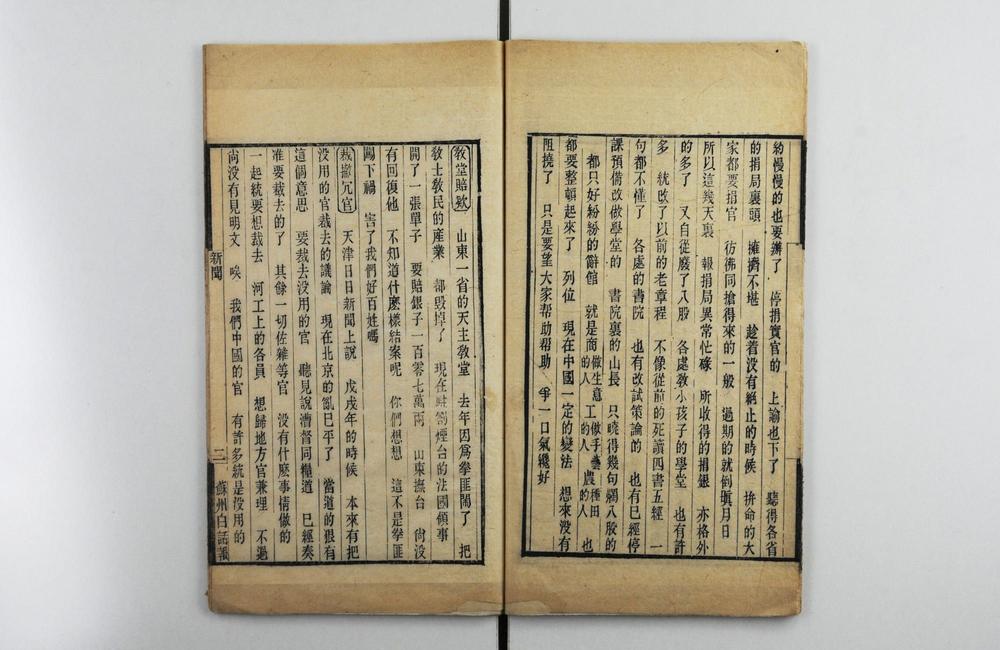 約慢慢的也要辦了　停捐實官的　上諭也下了　聽得各省
的捐局裏頭　擁擠不堪　趁着没有絕止的時候　拚命的大
家都要捐官　彷彿同搶得來的一般　過期的就倒瞋月日
所以這幾天裏　報捐局異常忙碌　所收得的捐銀　亦格外
的多了　又自從廢了八股　各處敎小孩子的學堂　也有許
多　統改了以前的老章程　不像從前的死讀四書五經　一
句都不懂了　各處的書院　也有改試策論的　也有已經停
課預備改做學堂的　書院裏的山長　只曉得幾句爛八股的
都只好紛紛的辭館　就是商做生意的人　工做手藝的人　農種田的人　也
都要整頓起來了　列位　現在中國一定的變法　想來没有
阻撓了　只是要望大家帮助帮助　爭一口氣纔好
敎堂賠欵　山東一省的天主敎堂　去年因爲拳匪鬧了　把
敎士敎民的產業　都毀掉了　現在駐劄煙台的法國領事
開了一張單子　要賠銀子一百零七萬兩　山東撫台　尙没
有回復他　不知道什麽樣結案呢　你們想想　這不是拳匪
闖下禍　害了我們好百姓嗎
裁撤冗官　天津日日新聞上說　戊戌年的時候　本來有把
没用的官裁去的議論　現在北京的亂已平了　當道的狠有
這個意思　要裁去没用的官　聽見說漕督同糧道　已經奏
准要裁去的了　其餘一切佐雜等官　没有什麽事情做的
一起統要想裁去　河工上的各員　想歸地方官兼理　不過
尙没有見明文　唉　我們中國的官　有許多統是没用的
新聞
二
蘇州白話報